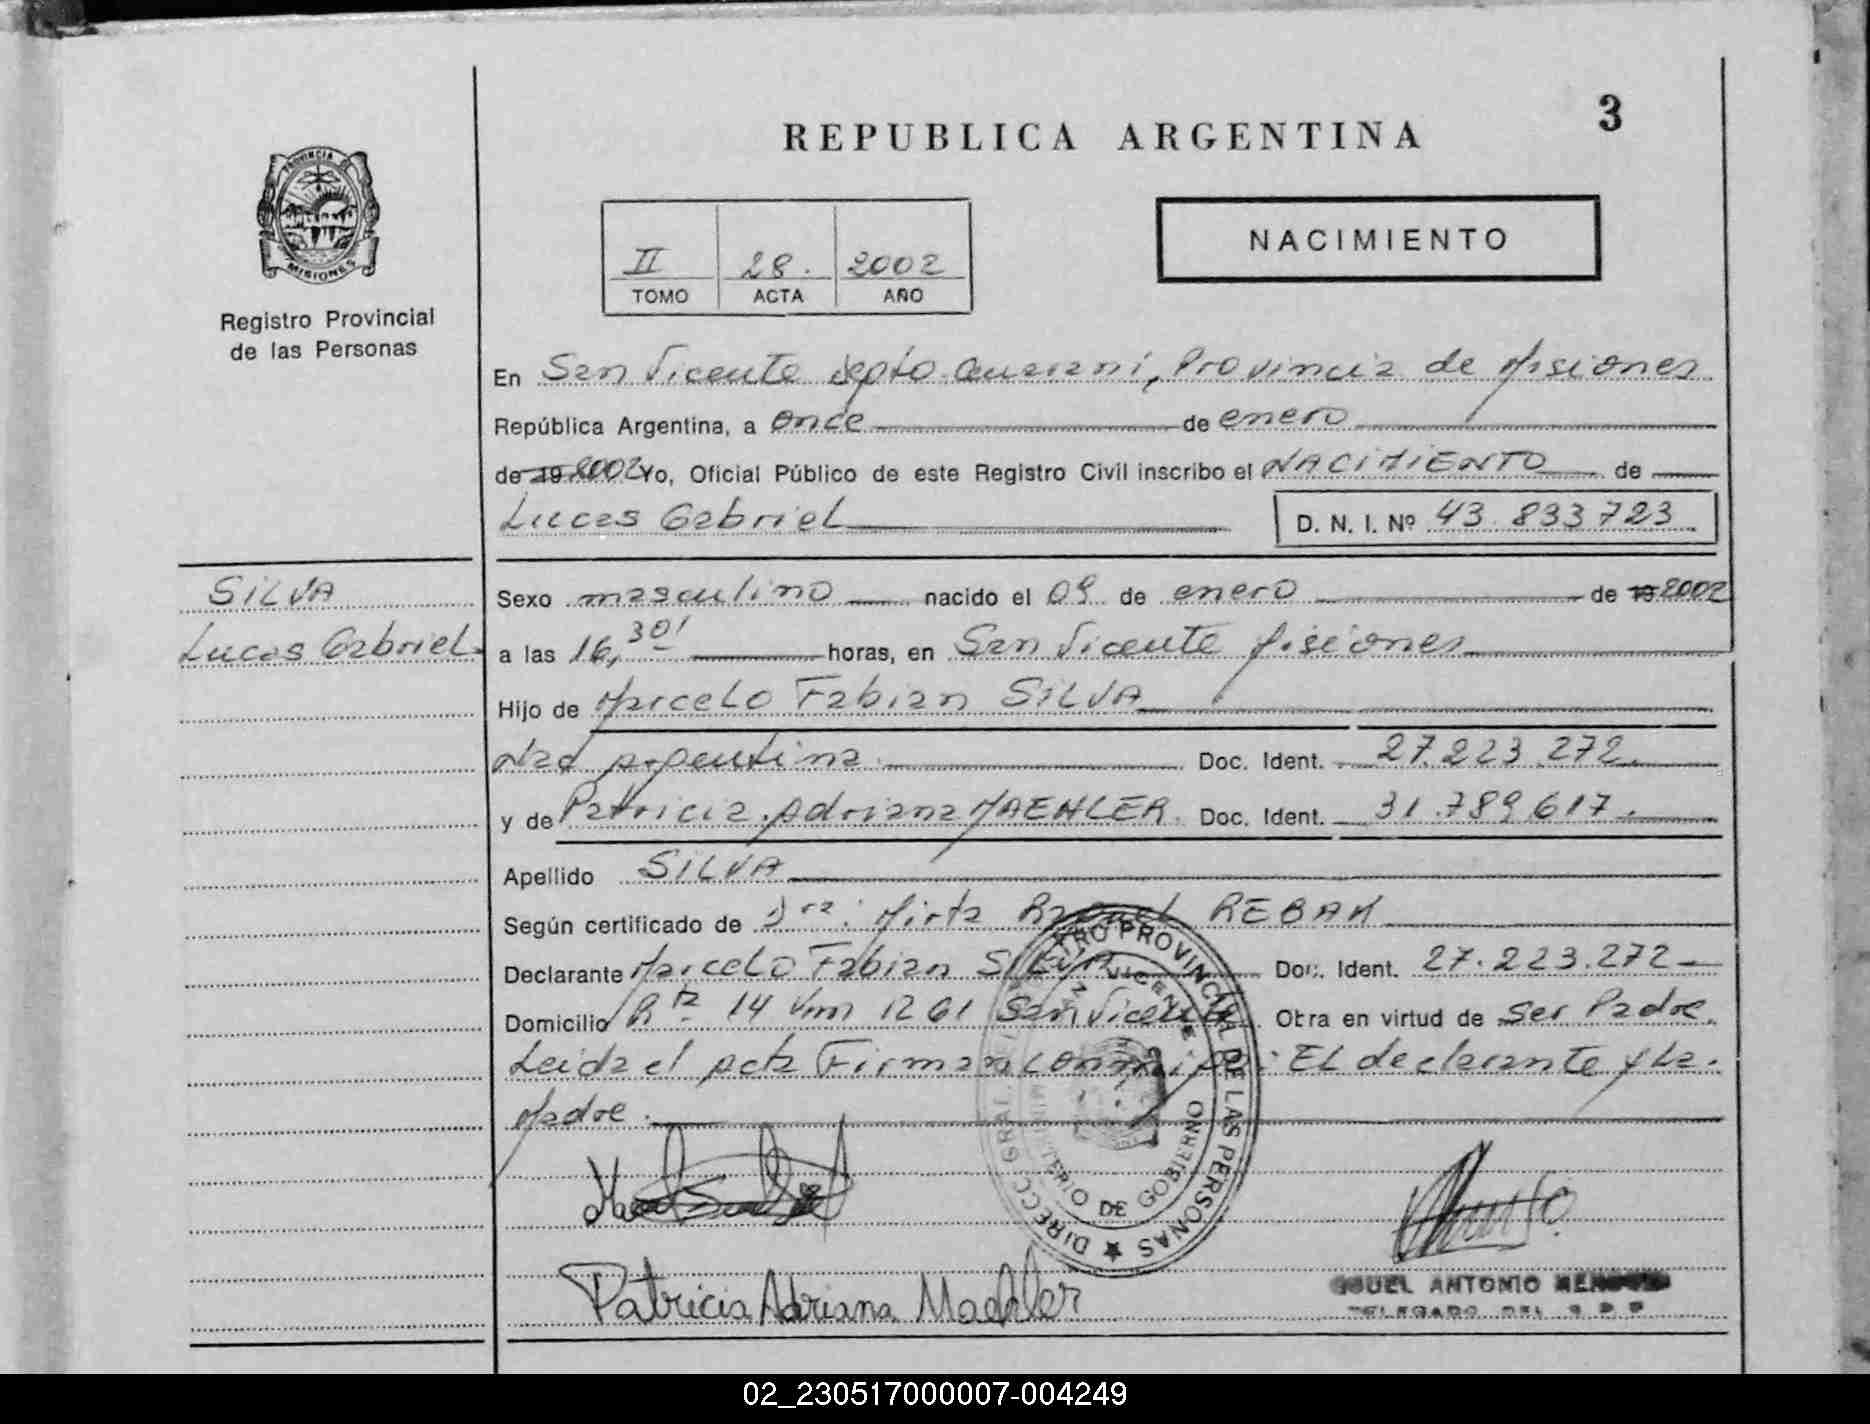 3
REPUBLICA ARGENTINA
PROVINCIA DE
MISIONES
Registro Provincial
de las Personas
II 28. 2002
TOMO ACTA AÑO
NACIMIENTO
En San Vicente depto Guarani, Provincia de Misiones
República Argentina, a once de enero
de 19 2002 Yo, Oficial Público de este Registro Civil inscribo el NACIMIENTO de
Lucas Gabriel D. N. I. Nº 43.833723
SILVA
Lucas Gabriel
Sexo masculino nacido el 09 de enero de 19 2002
a las 16,30' horas, en San Vicente Misiones
Hijo de Marcelo Fabian SILVA
Nac Argentina Doc. Ident. 27.223.272
y de Patricia Adriana MAEHLER Doc. Ident. 31.789.617.
Apellido SILVA
Según certificado de Dra: Mirta Raquel REBAK
Declarante Marcelo Fabian SILVA Doc. Ident. 27.223.272
Domicilio Rta 14 Km 1261 San Vicente Obra en virtud de Ser Padre.
Leida el acta Firman conmigo: EL declarante y La
Madre.
DIRECC GRAL REGISTRO PROVINCIAL DE LAS PERSONAS
SAN VICENTE
MINISTERIO DE GOBIERNO
Patricia Adriana Maehler
ANTONIO
DELEGADO DEL R P P
02_230517000007-004249